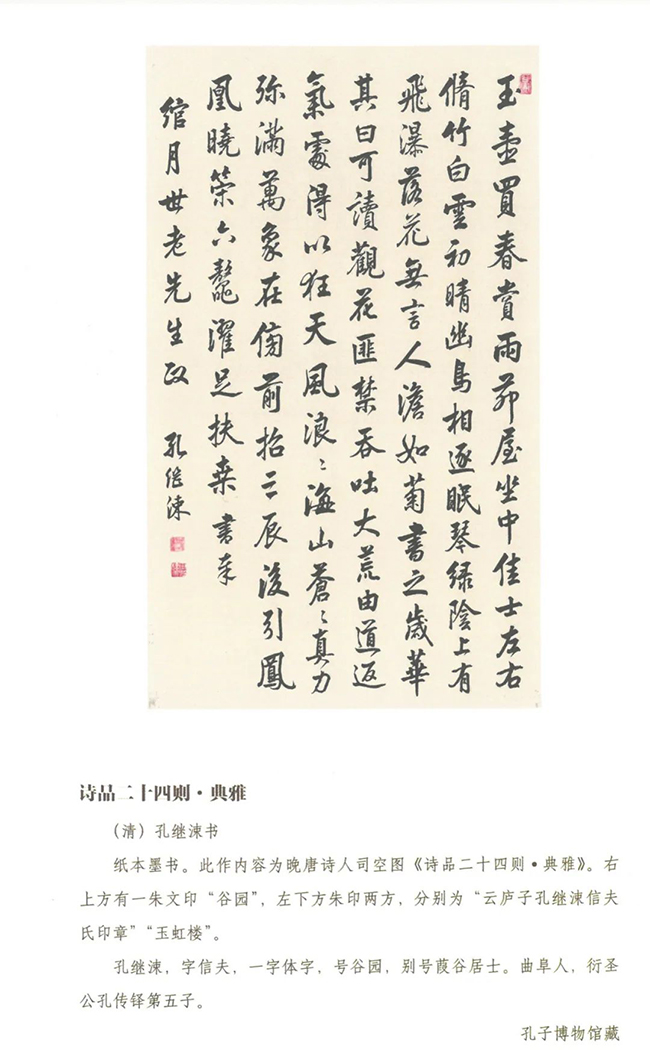 玉壺買春賞雨茆屋坐中佳士左右
脩竹白雲初晴幽鳥相逐眠琴緑陰上有
飛瀑落花無言人澹如菊書之歲華
其曰可讀觀花匪禁吞吐大荒由道返
氣處得以狂天風浪〻海山蒼〻真力
弥滿萬象在傍前招三辰後引鳳
凰曉策六鼇濯足扶桒書奉
綰月世老先生政 孔继涑
诗品二十四则·典雅
（清）孔继涑书
纸本墨书。此作内容为晚唐诗人司空图《诗品二十四则·典雅》。右
上方有一朱文印“谷园”，左下方朱印两方，分别为“云庐子孔继涑信夫
氏印章”“玉虹楼”。
孔继涑，字信夫，一字体字，号谷园，别号葭谷居士。曲阜人，衍圣
公孔传铎第五子。
孔子博物馆藏